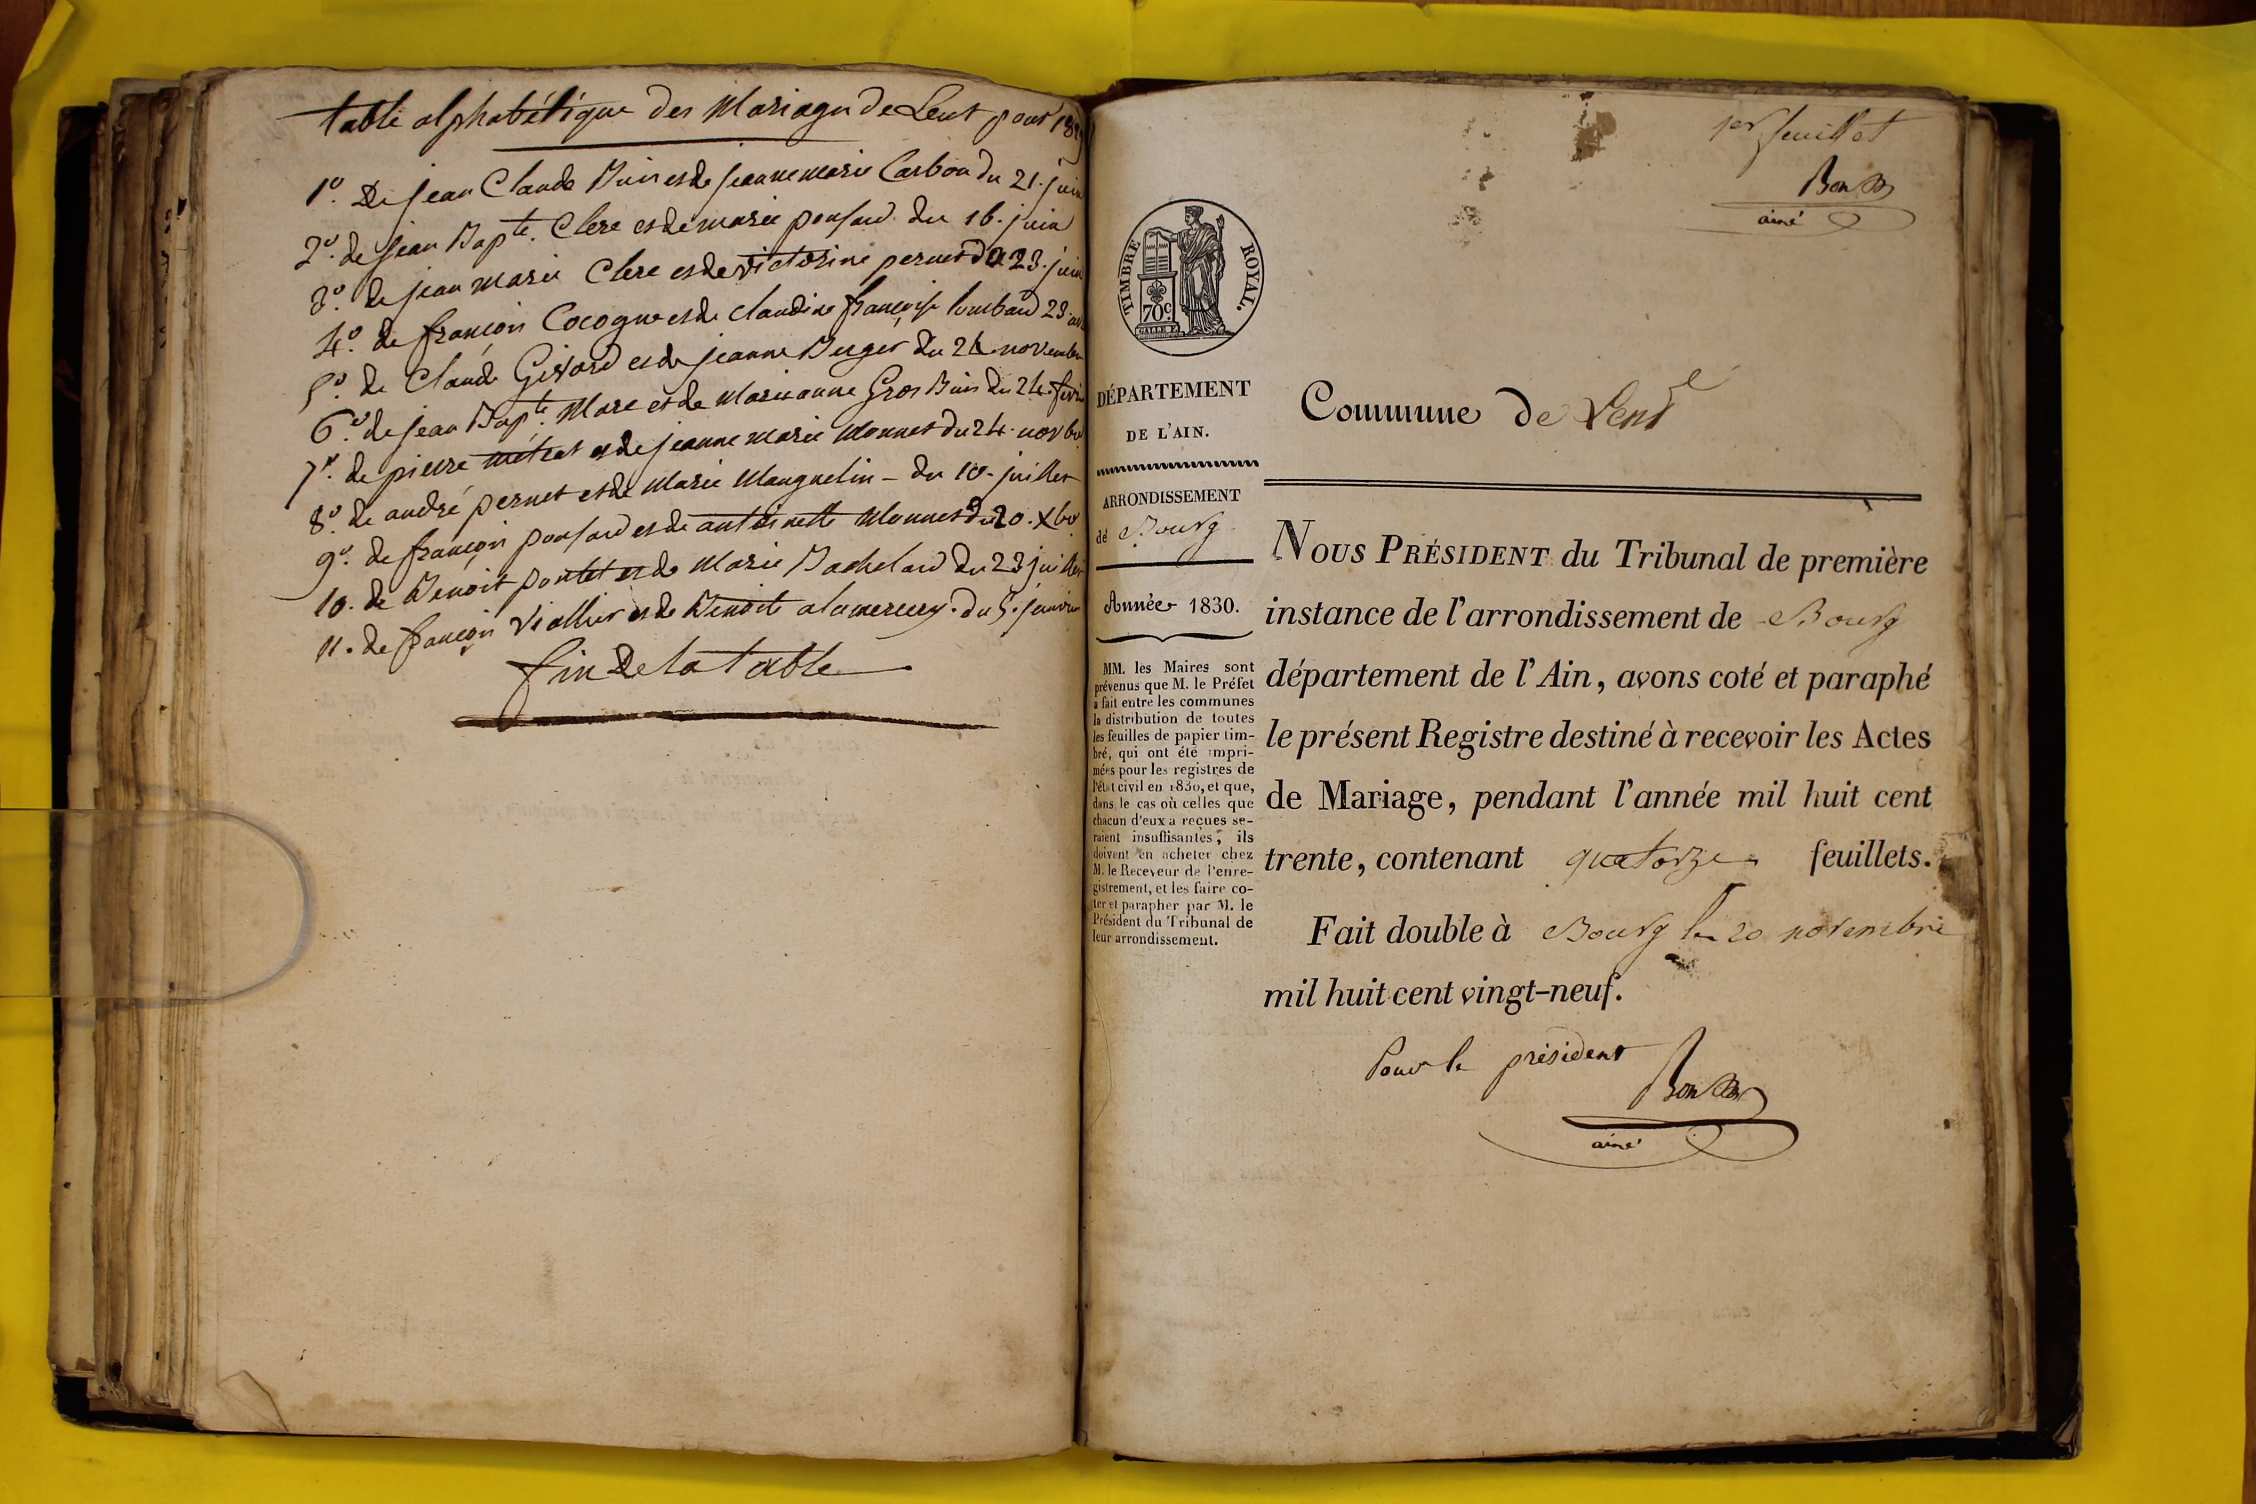 table alphabétique des Mariages de Lent pour
1º. De jean Claude Buis et de jeanne marie Carbon du 21. juin
2º. de jean Bapte. Clere et de marie ponsard du 16. juin
3º. de jean marie Clere et de victorine pernet du 23. juin
4º. de françois Cocogne et de claudine françoise lombard 23
5º. de Claude Givord et de jeanne Berger du 24 novembre
6º. de jean Bapte. Mare et de Marie anne Gros Buis du 24
7º. de pierre métrat et de jeanne marie Monnet du 24. novbre
8º. de andré pernet et de Marie Manguelin - du 10. juillet
9º. de françois ponsard et de antoinette Monnet du 20. Xbre
10. de Benoit pontet et de Marie Bachelard du 23 juillet
11. de françois Viallier et de Benoite alamercery. du 5. janvier
fin de la table
1er feuillet
Bon
ainé
TIMBRE ROYAL.
70 c.
DÉPARTEMENT
DE L'AIN.
ARRONDISSEMENT
de Bourg
Année 1830.
MM. les Maires sont
prévenus que M. le Préfet
a fait entre les communes
la distribution de toutes
les feuilles de papier tim-
bré, qui ont été impri-
mées pour les registres de
l'état civil en 1830, et que,
dans le cas où celles que
chacun d'eux a reçues se-
raient insuffisantes, ils
doivent en acheter chez
M. le Receveur de l'enre-
gistrement, et les faire co-
ter et parapher par M. le
Président du Tribunal de
leur arrondissement.
Commune de Lent
NOUS PRÉSIDENT du Tribunal de première
instance de l'arrondissement de Bourg
département de l'Ain, avons coté et paraphé
le présent Registre destiné à recevoir les Actes
de Mariage, pendant l'année mil huit cent
trente, contenant quatorze feuillets.
Fait double à Bourg le 20 novembre
mil huit cent vingt-neuf.
Pour le président
Bon
ainé